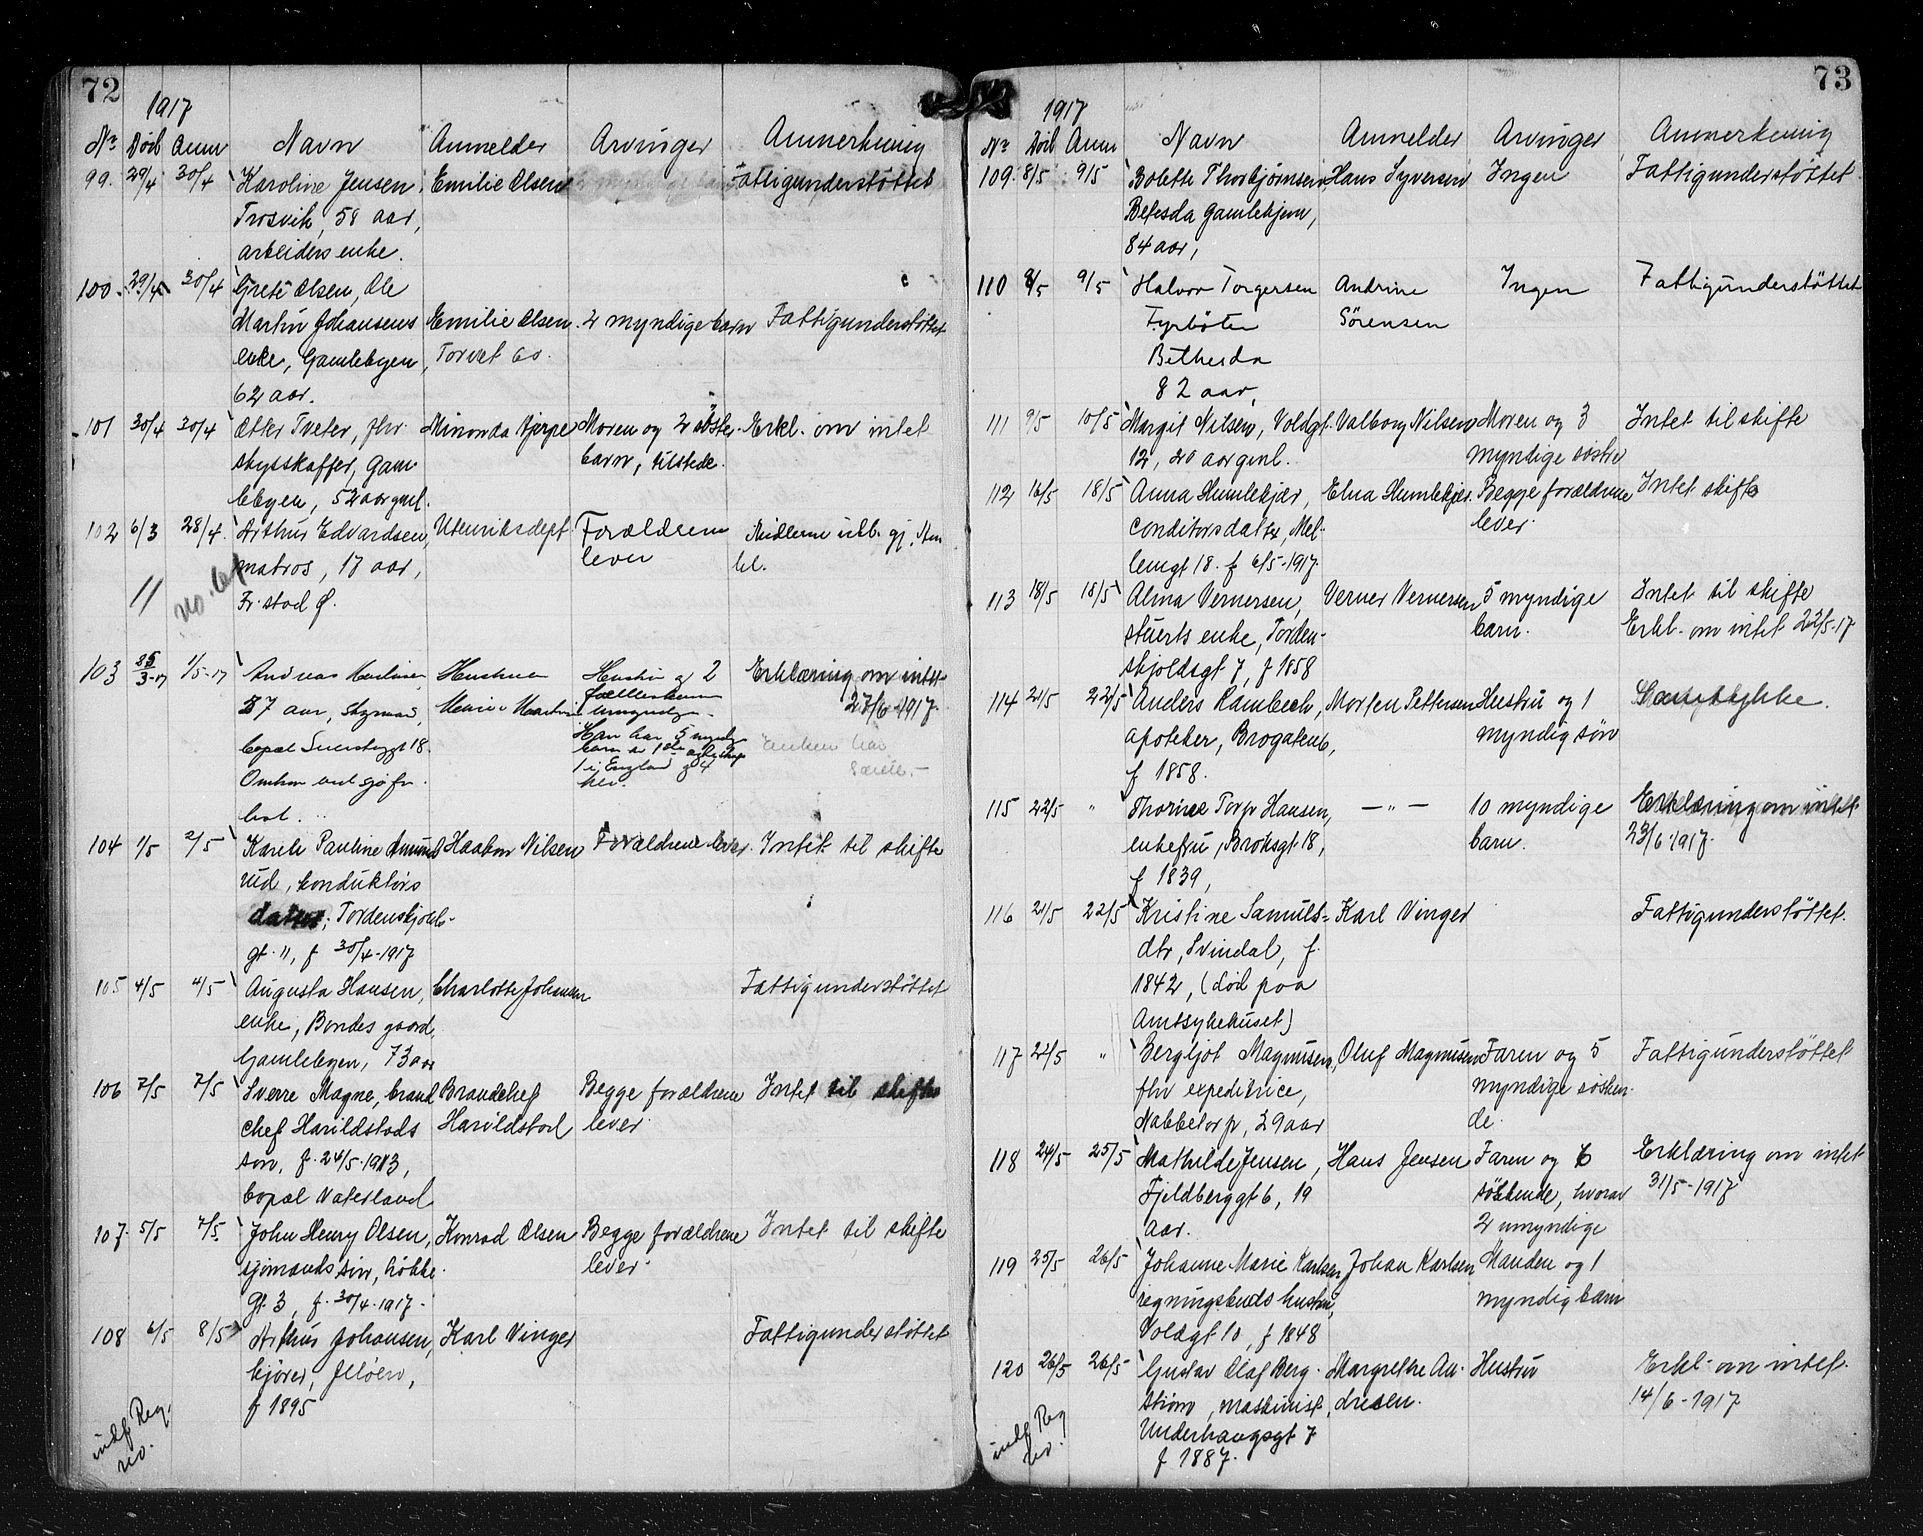 72
1917
No Död Anm Navn Anmelder Arvinger Anmerkning
99. 29/4 30/4 Karoline Jensen, Emilie Olsen Fattigunderstöttet
Trosvik, 58 aar,
arbeiders enke.
100. 29/4 30/4 Grete Olsen, Ole
Martin Johansens Emilie Olsen 2 myndige barn Fattigunderstöttet
enke, Gamlebyen, Torvet 60.
62 aar.
101 30/4 30/4 Tveter, fhv. Minonda Moren og 2 söster- Erkl. om intet
skysskaffer, Gam- barn, tilstede.
lebyen, 52 aar gml.
102 6/3 28/4 Arthur Edvardsen, Utenriksdept. Forældrene
matros, 17 aar, lever
11 Fr.stad Ø.
103 1/5-17 Andreas Hustruen Hustru og 2 Erklæring om intet
37 aar, fællesbarn 27/6 1917
Han har 5 myndige Enken har
1 i England og 4
Omkom ved
104 1/5 2/5 Karin Pauline Amund- Haakon Nilsen Forældrene lever. Intet til skifte
rud, konduktörs
datter, Tordenskjolds-
gt. 11, f 30/4-1917
105 4/5 4/5 Augusta Hansen, Charlotte Johansen Fattigunderstöttet
enke, Bondes gaard,
Gamlebyen, 73 aar
106 7/5 7/5 Sverre Magne, brand- Brandchef Begge forældrene Intet til skifte
chef Harildstads Harildstad lever.
sön, f. 24/5-1913,
Copal Vaterland
107. 5/5 7/5 John Henry Olsen, Konrad Olsen Begge forældrene Intet til skifte
sjömands sön, lever.
Gt. 3, f. 30/4-1917.
108 6/5 8/5 Arthur Johansen, Karl Vinger Fattigunderstöttet
kjörer, Jelöen,
f 1895
indf. Reg.
no.
73
1917
No Död Anm Navn Anmelder Arvinger Anmerkning
109. 8/5 9/5 Bolette Thorbjörnsen Hans Syversen Ingen Fattigunderstöttet
Betesda Gamlehjem,
84 aar,
110 8/5 9/5 Halvor Torgersen Andrine Ingen Fattigunderstöttet
Fyrböter Sörensen
Bethesda
82 aar,
111 9/5 10/5 Margit Nilsen, Voldgt. Valborg Nilsen Moren og 3 Intet til skifte
12, 20 aar gml. myndige söstre
112 16/5 18/5 Anna Humlekjær, Elna Humlekjær. Begge forældrene Intet skifte
conditors datter, Mel- lever.
lemgt 18. f 6/5-1917.
113 18/5 18/5 Alma Vernersen, Verner Vernersen 5 myndige Intet til skifte
stuerts enke, Torden- barn. Erkl. om intet 22/5-17
skjoldsgt 7, f 1858
114 21/5 22/5 Anders Rambech, Morten Pettersen Hustru og 1
apoteker, Brogaten 6, myndig sön
f 1858.
115 22/5 " Torp Hansen, — " — 10 myndige Erklæring om intet
enkefru, Brohsgt 18, barn. 23/6 1917.
f 1839,
116 21/5 22/5 Kristine Samuels- Karl Vinger Fattigunderstöttet.
dtr, Svindal, f.
1842, (död paa
Amtssykehuset)
117 22/5 " Bergljot Magnusen, Oluf Magnusen Faren og 5 Fattigunderstöttet
fhv expeditrice, myndige sösken-
Nabbetorp, 29 aar de.
118 24/5 25/5 Mathilde Jensen, Hans Jensen Faren og 6 Erklæring om intet
Fjeldberggt 6, 19 söskende, hvorav 31/5-1917
aar. 2 umyndige
119 25/5 26/5 Johanne Marie Karlsen, Johan Karlsen Manden og 1
regningsbuds hustru, myndig barn
Voldgt 10, f 1848
120 26/5 26/5 Gustav Olaf Berg- Margrethe An- Hustru Erkl. om intet.
ström, maskinist, dresen. 14/6-1917
Underhaugsgt 7
f 1887.
indf Reg
no.